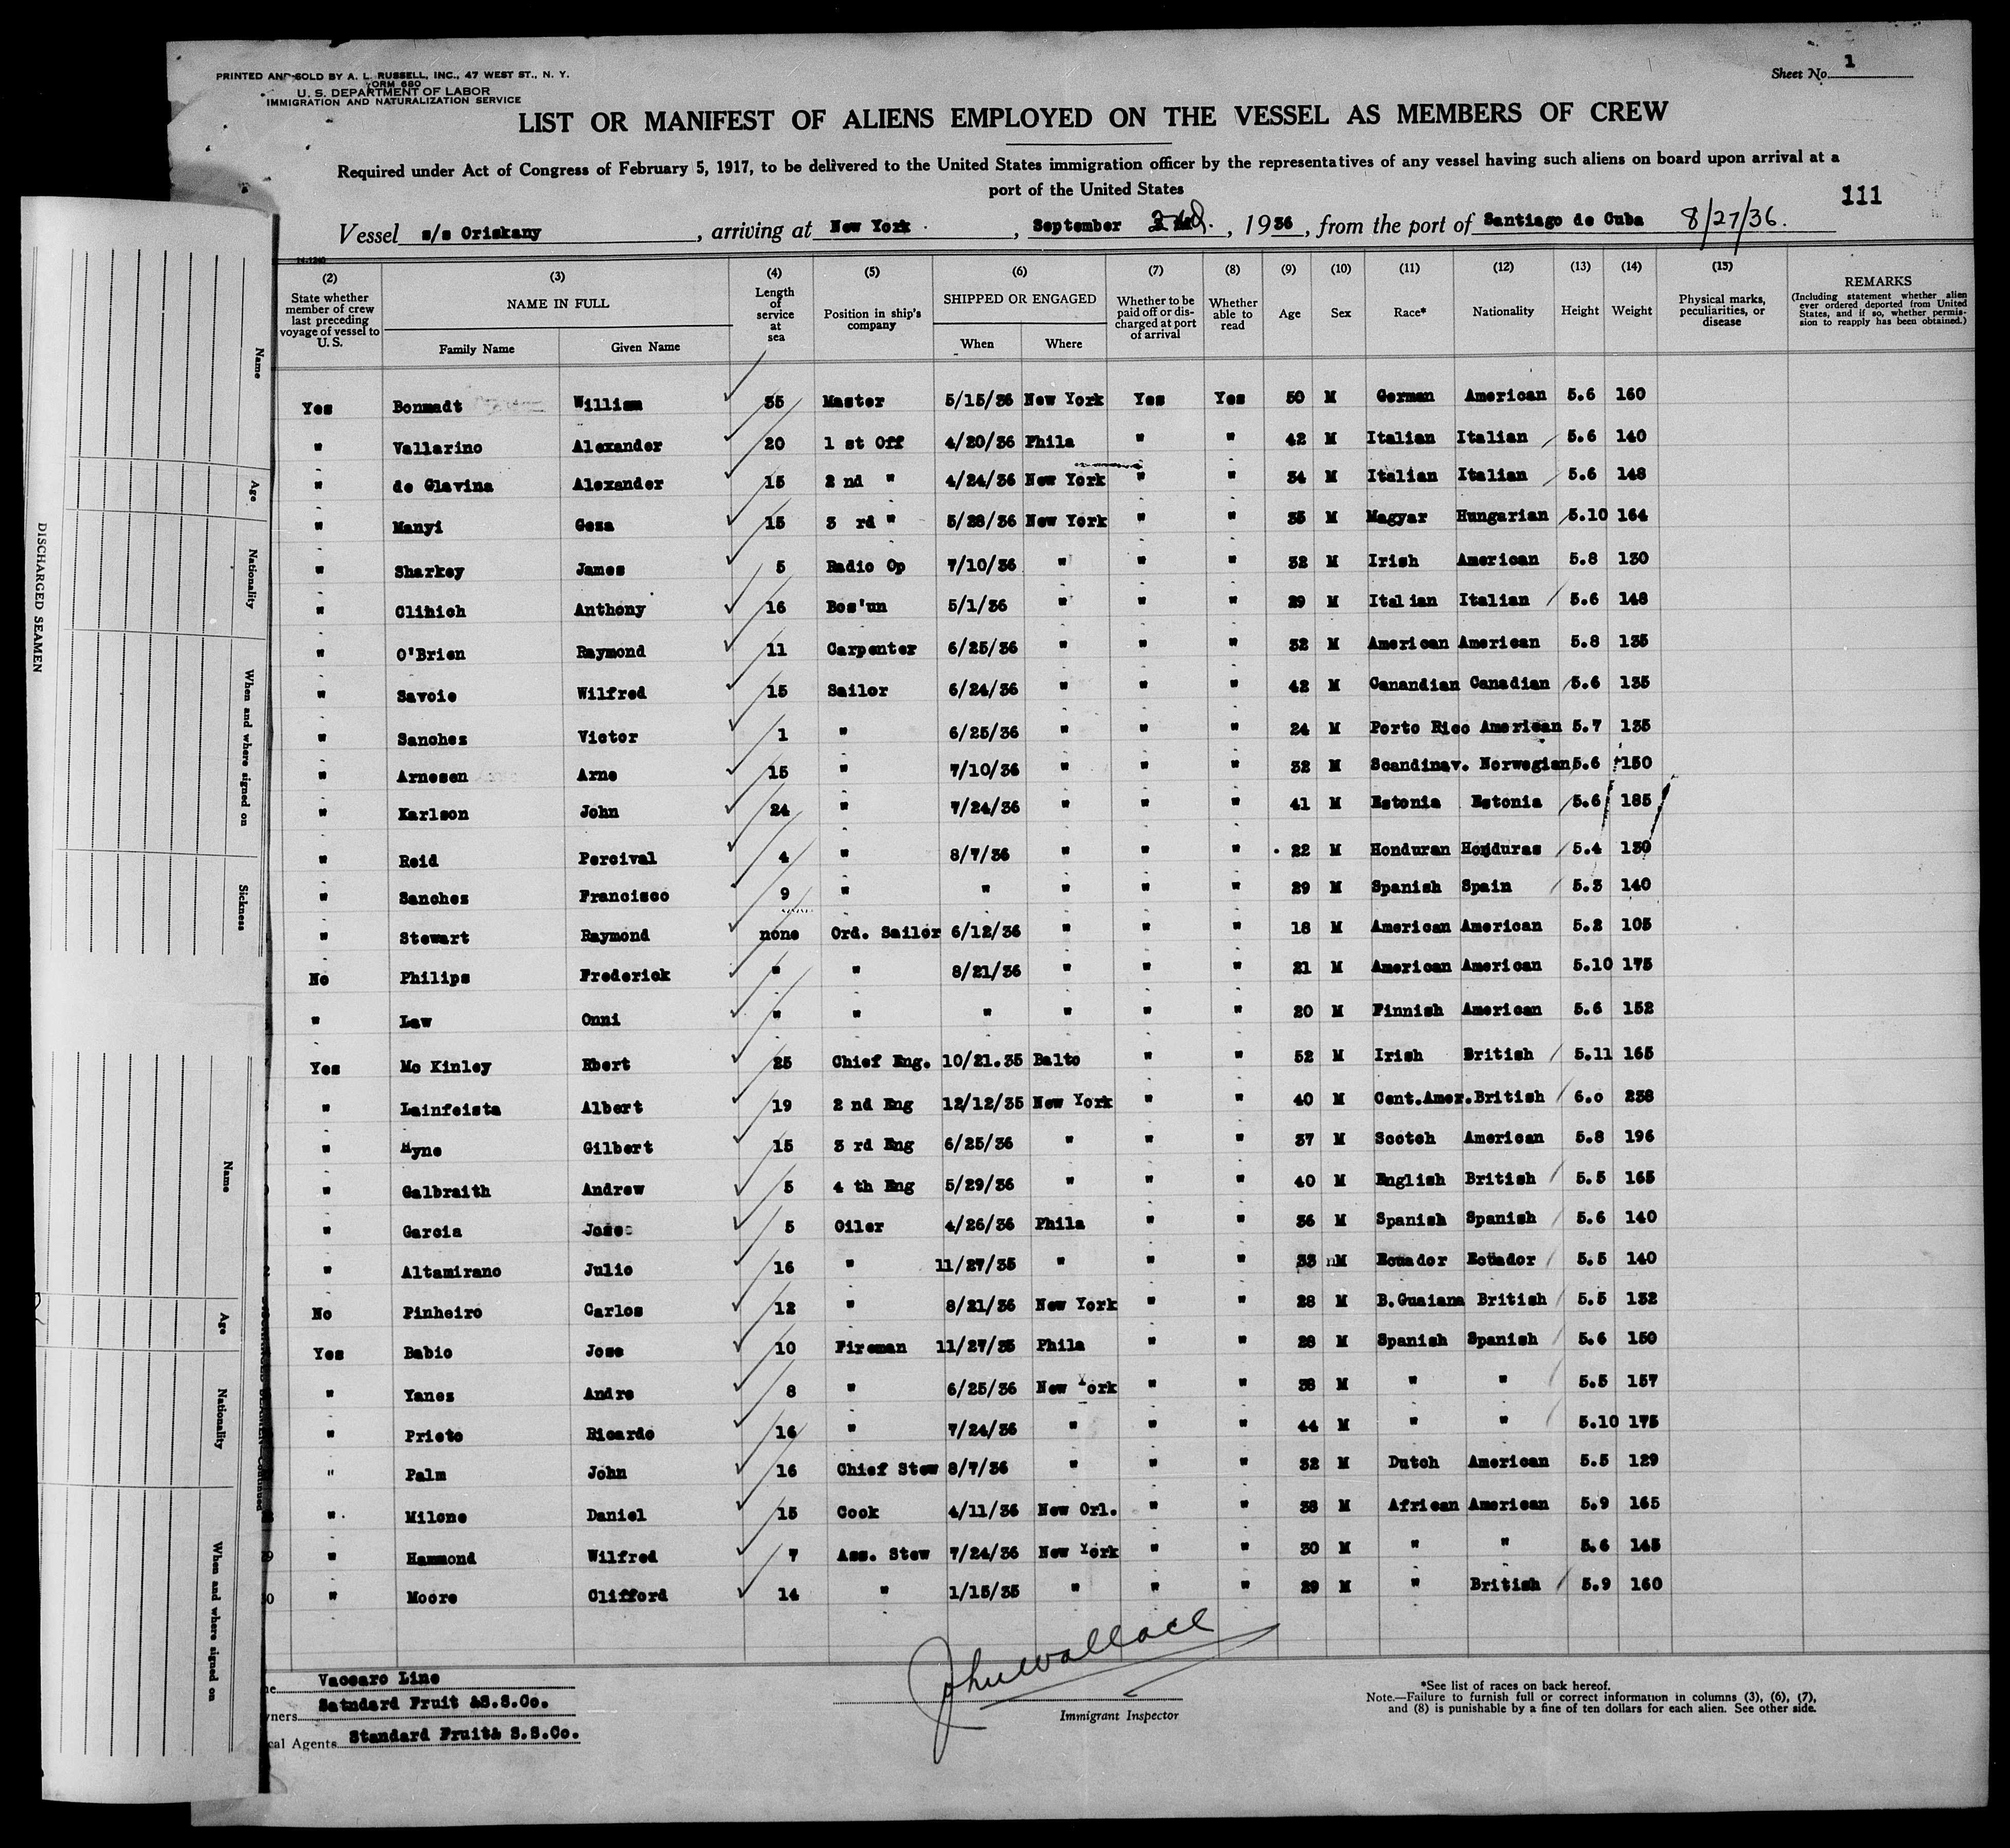 PRINTED AND SOLD BY A. L. RUSSELL, INC., 47 WEST ST., N. Y.
FORM 680
U. S. DEPARTMENT OF LABOR
IMMIGRATION AND NATURALIZATION SERVICE
Sheet No. 1
LIST OR MANIFEST OF ALIENS EMPLOYED ON THE VESSEL AS MEMBERS OF CREW
Required under Act of Congress of February 5, 1917, to be delivered to the United States immigration officer by the representatives of any vessel having such aliens on board upon arrival at a
port of the United States
111
Vessel s/s Oriskany, arriving at New York, September, 1936, from the port of Santiago de Cuba 8/27/36.
14-1240
(2) (3) (4) (5) (6) (7) (8) (9) (10) (11) (12) (13) (14) (15) REMARKS
State whether member of crew last preceding voyage of vessel to U. S.
NAME IN FULL
Family Name Given Name
Length of service at sea
Position in ship's company
SHIPPED OR ENGAGED
When Where
Whether to be paid off or discharged at port of arrival
Whether able to read
Age Sex Race* Nationality Height Weight
Physical marks, peculiarities, or disease
(Including statement whether alien ever ordered deported from United States, and if so, whether permission to reapply has been obtained.)
Yes Bonmadt William 35 Master 5/15/36 New York Yes Yes 50 M German American 5.6 160
" Vallarino Alexander 20 1 st Off 4/20/36 Phila " " 42 M Italian Italian 5.6 140
" de Glavina Alexander 15 2 nd " 4/24/36 New York " " 34 M Italian Italian 5.6 148
" Manyi Geza 15 3 rd " 5/28/36 New York " " 35 M Magyar Hungarian 5.10 164
" Sharkey James 5 Radio Op 7/10/36 " " " 32 M Irish American 5.8 130
" Clinich Anthony 16 Bos'un 5/1/36 " " " 29 M Italian Italian 5.6 148
" O'Brien Raymond 11 Carpenter 6/25/36 " " " 32 M American American 5.8 135
" Savoie Wilfred 15 Sailor 6/24/36 " " " 42 M Canandian Canadian 5.6 135
" Sanchez Victor 1 " 6/25/36 " " " 24 M Porto Rico American 5.7 135
" Arnesen Arne 15 " 7/10/36 " " " 32 M Scandinav. Norwegian 5.6 150
" Karlson John 24 " 7/24/36 " " " 41 M Estonia Estonia 5.6 185
" Reid Percival 4 " 8/7/36 " " " 22 M Honduran Honduras 5.4 130
" Sanchez Francisco 9 " " " " " 29 M Spanish Spain 5.3 140
" Stewart Raymond none Ord. Sailor 6/12/36 " " " 18 M American American 5.2 105
No Philips Frederick " " 8/21/36 " " " 21 M American American 5.10 175
" Law Onni " " " " " " 20 M Finnish American 5.6 152
Yes Mc Kinley Rbert 25 Chief Eng. 10/21.35 Balto " " 52 M Irish British 5.11 165
" Lainfeista Albert 19 2 nd Eng 12/12/35 New York " " 40 M Cent.Amer. British 6.0 238
" Hyne Gilbert 15 3 rd Eng 6/25/36 " " " 37 M Scotch American 5.8 196
" Galbraith Andrew 5 4 th Eng 5/29/36 " " " 40 M English British 5.5 165
" Garcia Jose 5 Oiler 4/26/36 Phila " " 36 M Spanish Spanish 5.6 140
" Altamirano Julio 16 " 11/27/35 " " " 33 M Ecuador Ecuador 5.5 140
No Pinheiro Carlos 12 " 8/21/36 New York " " 28 M B.Guaiana British 5.5 132
Yes Babio Jose 10 Fireman 11/27/35 Phila " " 28 M Spanish Spanish 5.6 150
" Yanes Andre 8 " 6/25/36 New York " " 38 M " " 5.5 157
" Prieto Ricardo 16 " 7/24/36 " " " 44 M " " 5.10 175
" Palm John 16 Chief Stew 8/7/36 " " " 32 M Dutch American 5.5 129
" Milone Daniel 15 Cook 4/11/36 New Orl. " " 38 M African American 5.9 165
" Hammond Wilfred 7 Ass. Stew 7/24/36 New York " " 30 M " " 5.6 145
" Moore Clifford 14 " 1/15/35 " " " 29 M " British 5.9 160
Vaccaro Line
Satndard Fruit &S.S.Co.
Standard Fruit& S.S.Co.
cal Agents
John Wallace
Immigrant Inspector
*See list of races on back hereof.
Note.—Failure to furnish full or correct information in columns (3), (6), (7),
and (8) is punishable by a fine of ten dollars for each alien. See other side.
DISCHARGED SEAMEN
Name
Age
Nationality
When and where signed on
Sickness
Name
Age
Nationality
When and where signed on